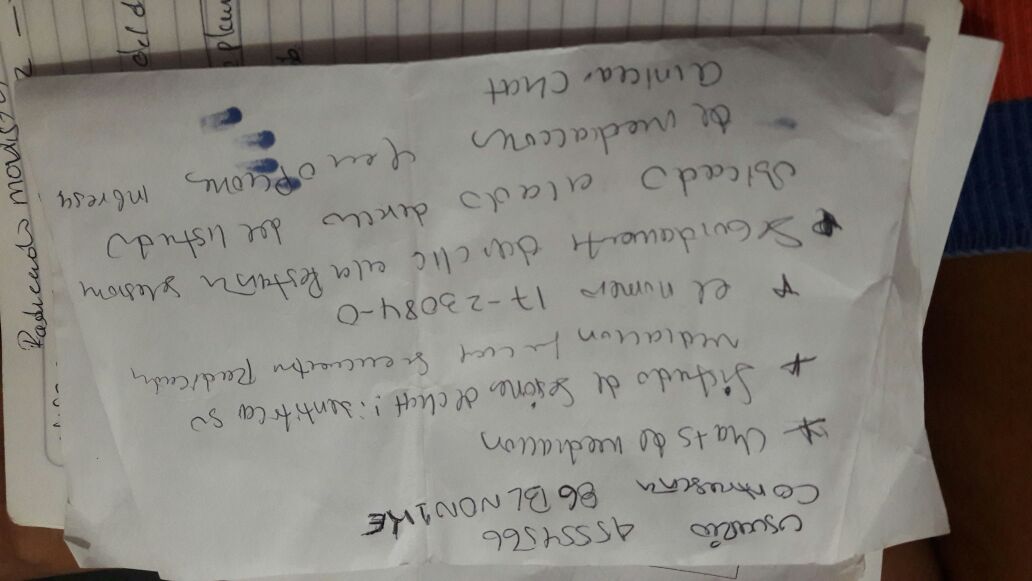 usuario 45554566
Contraseña 86BLNON1KE
* Chats de mediacion
* listado de Sesiónes de chat! identifica su
mediacion la cual se encuentra Radicada
* el numero 17-23084-0
* Seguidamente dar clic a la Pestaña selesiona
Ubicado al lado derecho del listado
de mediacciones y en opciones ingresa
a iniciar chat
Radicado movistar